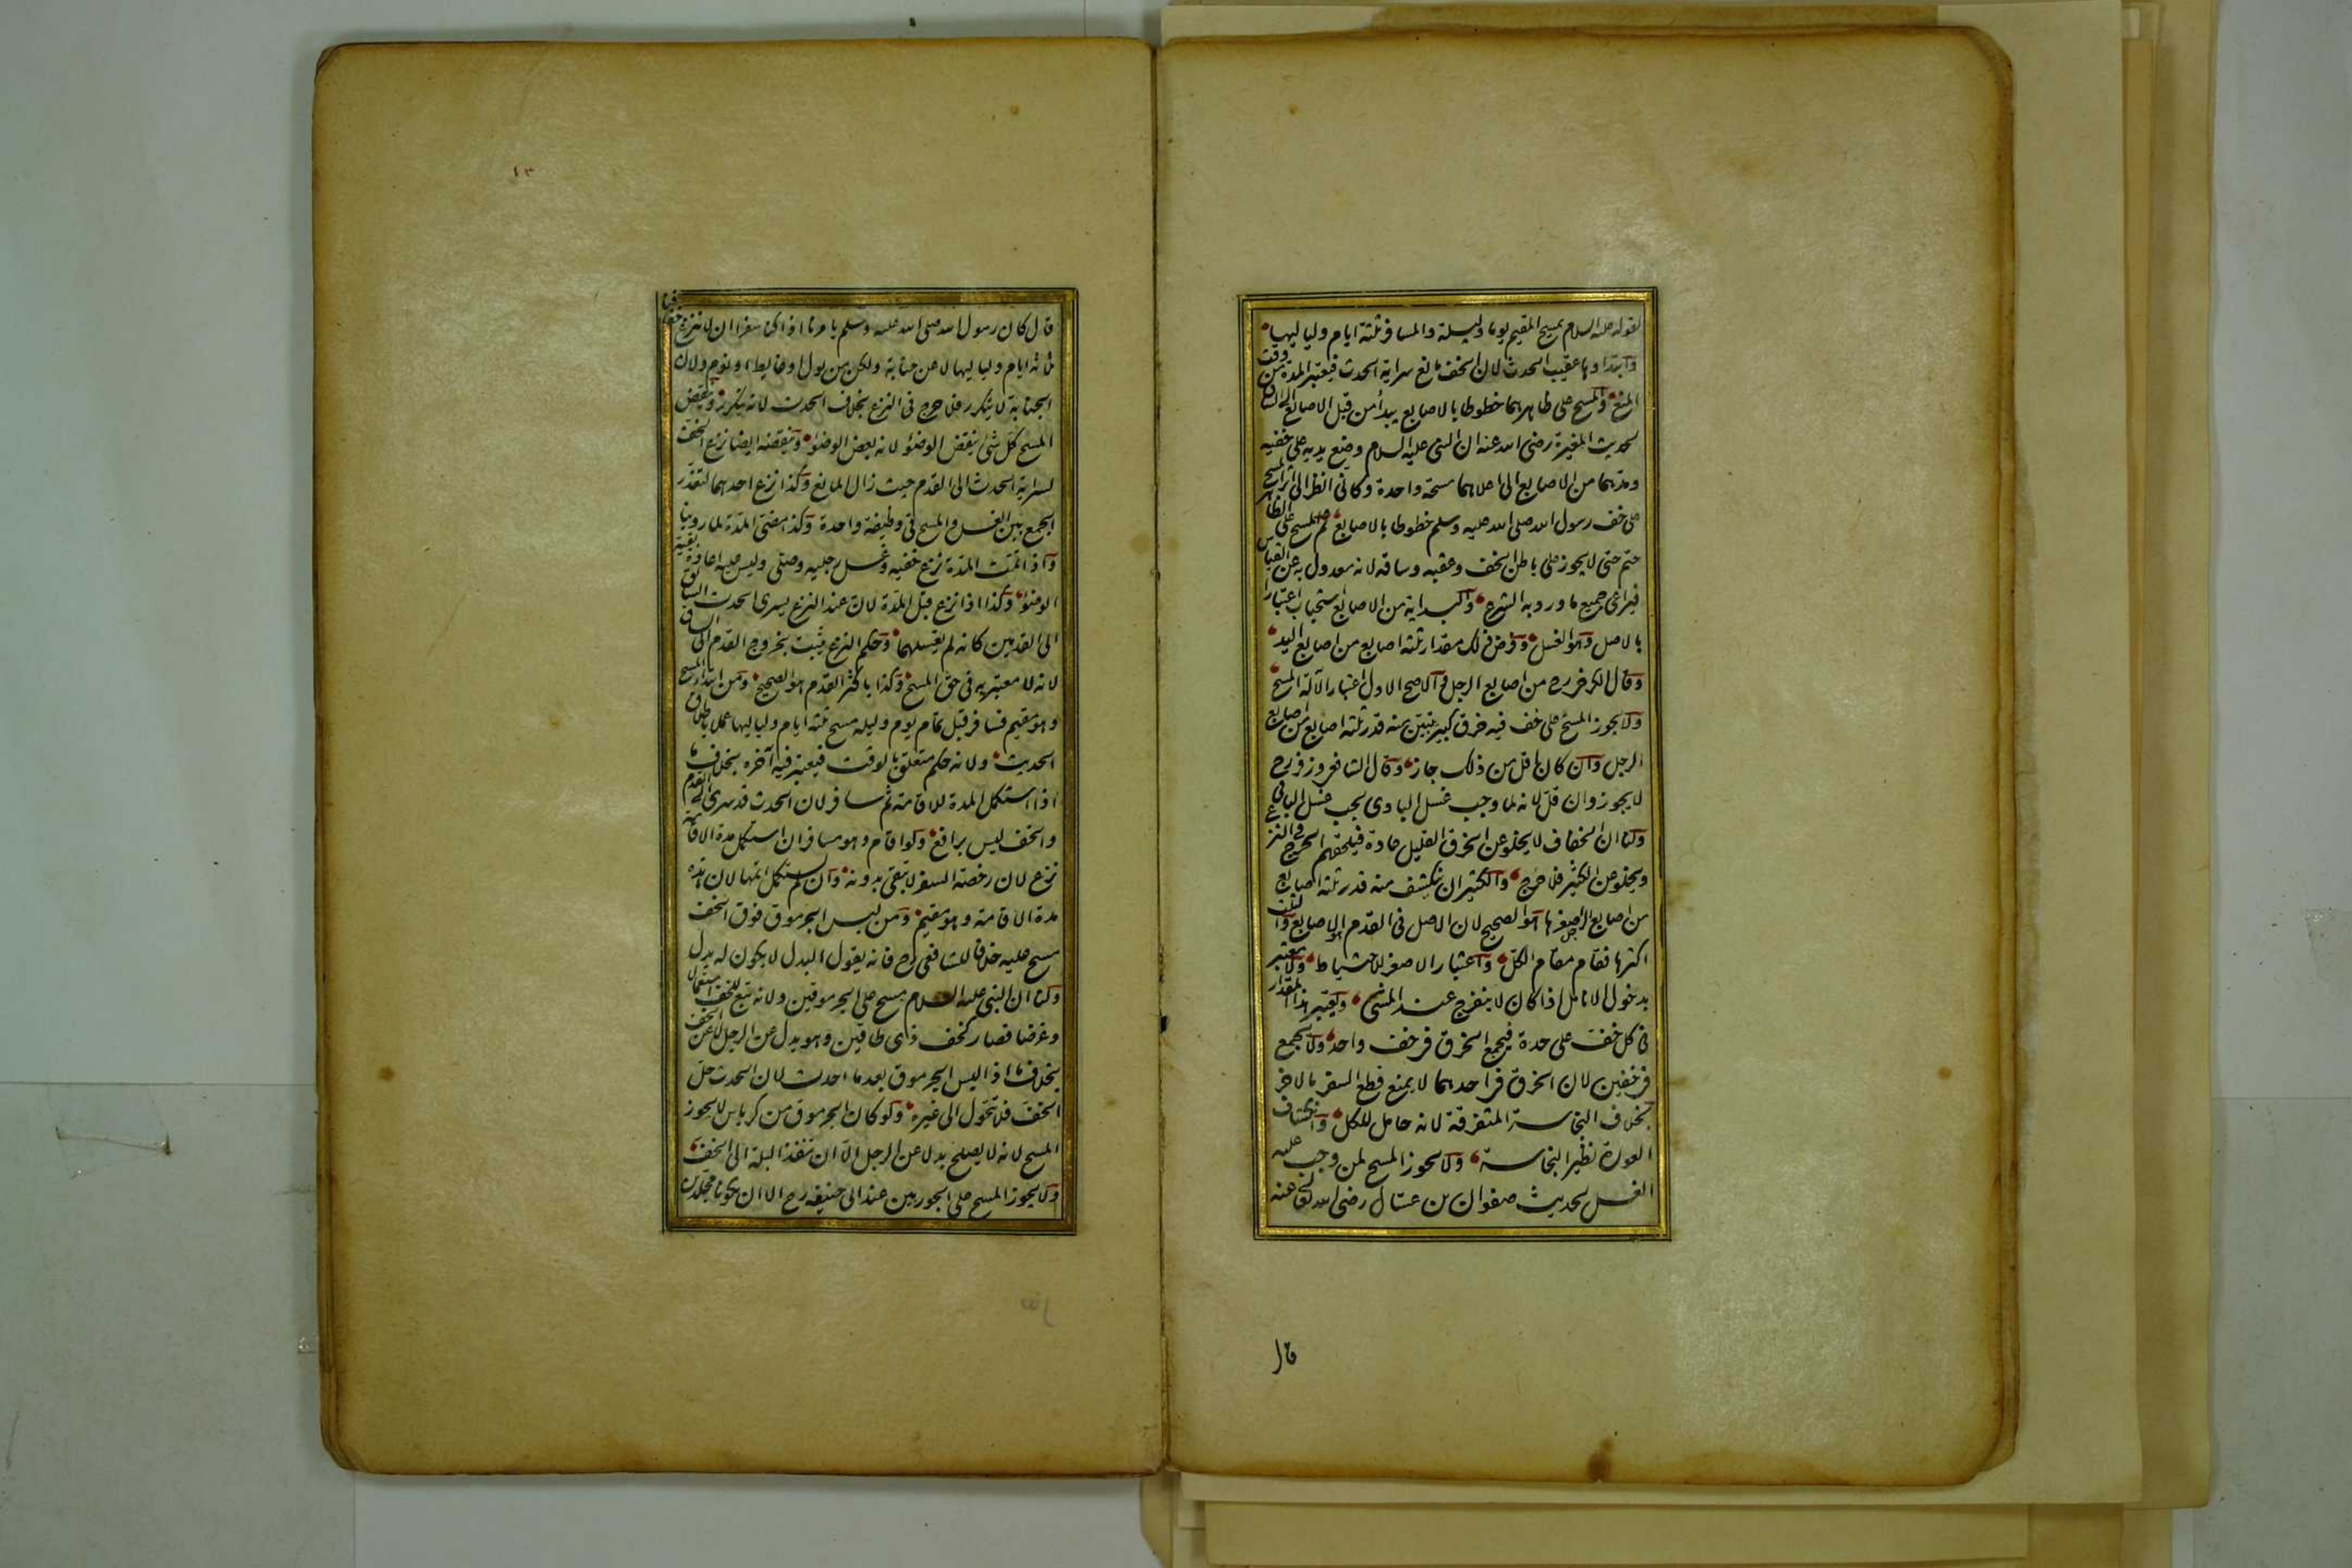 لقوله عليه السلام يمسح المقيم يوما وليلة والمسافر ثلثة ايام ولياليها
وابتداوها عقيب الحدث لان الخف مانع سراية الحدث فيعتبر المدة من وقت
المنع والمسح على ظاهرهما خطوطا بالاصابع يبدأ من قبل الاصابع الى الساق
لحديث المغيرة رضى الله عنه ان النبى عليه السلام وضع يديه على خفيه
ومدهما من الاصابع الى اعلاهما مسحة واحدة وكانى انظر الى اثر المسح
على خف رسول الله صلى الله عليه وسلم خطوطا بالاصابع ثم المسح على الظاهر
حتم حتى لا يجوز على باطن الخف وعقبه وساقه لانه معدول به عن القياس
فيراعى جميع ما ورد به الشرع والبداية من الاصابع استحباب اعتبارا
بالاصل وهو الغسل وفرض ذلك مقدار ثلثة اصابع من اصابع اليد
وقال الكرخى رح من اصابع الرجل والاصح الاول اعتبارا لآلة المسح
ولا يجوز المسح على خف فيه خرق كبير يبين منه قدر ثلثة اصابع من اصابع
الرجل وان كان اقل من ذلك جاز وقال الشافعى وزفر رح
لا يجوز وان قل لانه لما وجب غسل البادى يجب غسل الباقى
ولنا ان الخفاف لا يخلو عن الخرق القليل عادة فيلحقهم الحرج فى النزع
ويخلو عن الكثير فلا حرج والكثير ان ينكشف منه قدر ثلثة اصابع
من اصابع الرجل اصغرها هو الصحيح لان الاصل فى القدم هو الاصابع والثلث
اكثرها فقام مقام الكل واعتبار الاصغر للاحتياط ولا يعتبر
بدخول الانامل اذا كان لا ينفرج عند المشى ويعتبر هذا المقدار
فى كل خف على حدة فيجمع الخرق فى خف واحد ولا يجمع
فى خفين لان الخرق فى احدهما لا يمنع قطع السفر بالاخر
بخلاف النجاسة المتفرقة لانه حامل للكل وانكشاف
العورة نظير النجاسة ولا يجوز المسح لمن وجب عليه
الغسل لحديث صفوان بن عسال رضى الله تعالى عنه
قال
١٣
قال كان رسول الله صلى الله عليه وسلم يامرنا اذا كنا سفرا ان لا ننزع خفافنا
ثلثة ايام ولياليها لا عن جنابة ولكن من بول او غايط او نوم ولان
الجنابة لا يتكرر فلا حرج فى النزع بخلاف الحدث لانه يتكرر وينقض
المسح كل شئ ينقض الوضوء لانه بعض الوضوء وينقضه ايضا نزع الخف
لسراية الحدث الى القدم حيث زال المانع وكذا نزع احدهما لتعذر
الجمع بين الغسل والمسح فى وظيفة واحدة وكذا مضى المدة لما روينا
واذا تمت المدة نزع خفيه وغسل رجليه وصلى وليس عليه اعادة بقية
الوضوء وكذا اذا نزع قبل المدة لان عند النزع يسرى الحدث السابق
الى القدمين كانه لم يغسلهما وحكم النزع يثبت بخروج القدم الى الساق
لانه لا معتبر به فى حق المسح وكذا باكثر القدم هو الصحيح ومن ابتداء المسح
وهو مقيم فسافر قبل تمام يوم وليلة مسح ثلثة ايام ولياليها عملا باطلاق
الحديث ولانه حكم متعلق بالوقت فيعتبر فيه آخره بخلاف ما
اذا استكمل المدة للاقامة ثم سافر لان الحدث قد سرى الى القدم
والخف ليس برافع ولو اقام وهو مسافر ان استكمل مدة الاقامة
نزع لان رخصة السفر لا تبقى بدونه وان لم يستكمل اتمها لان هذه
مدة الاقامة وهو مقيم ومن لبس الجرموق فوق الخف
مسح عليه خلافا للشافعى رح فانه يقول البدل لا يكون له بدل
ولنا ان النبى عليه السلام مسح على الجرموقين ولانه تبع للخف استعمالا
وغرضا فصار كخف ذى طاقين وهو بدل عن الرجل لا عن الخف
بخلاف ما اذا لبس الجرموق بعد ما احدث لان الحدث حل
الخف فلا تحول الى غيره ولو كان الجرموق من كرباس لا يجوز
المسح لانه لا يصلح بدلا عن الرجل الا ان تنفذ البلة الى الخف
ولا يجوز المسح على الجوربين عند ابى حنيفة رح الا ان يكونا مجلدين